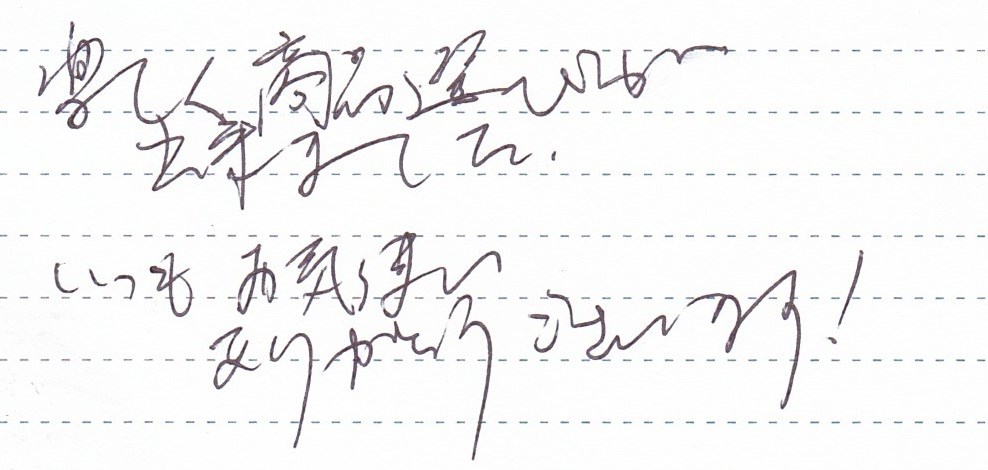 楽しく商品選びが
出来ました.
いつもお気遣い
ありがとうございます!